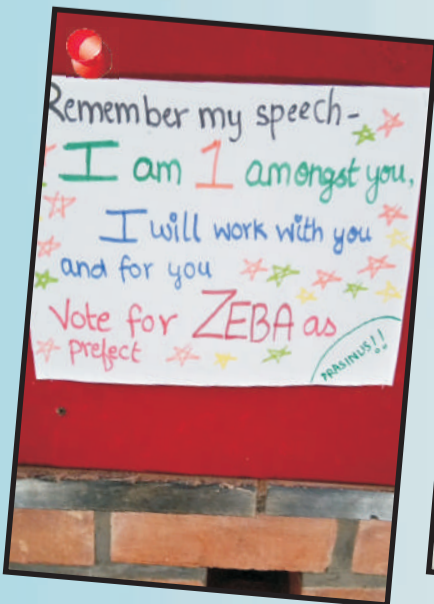 Remember my speech-
I am 1 amongst you,
I will work with you
and for you
Vote for ZEBA as
prefect
PRASINUS!!